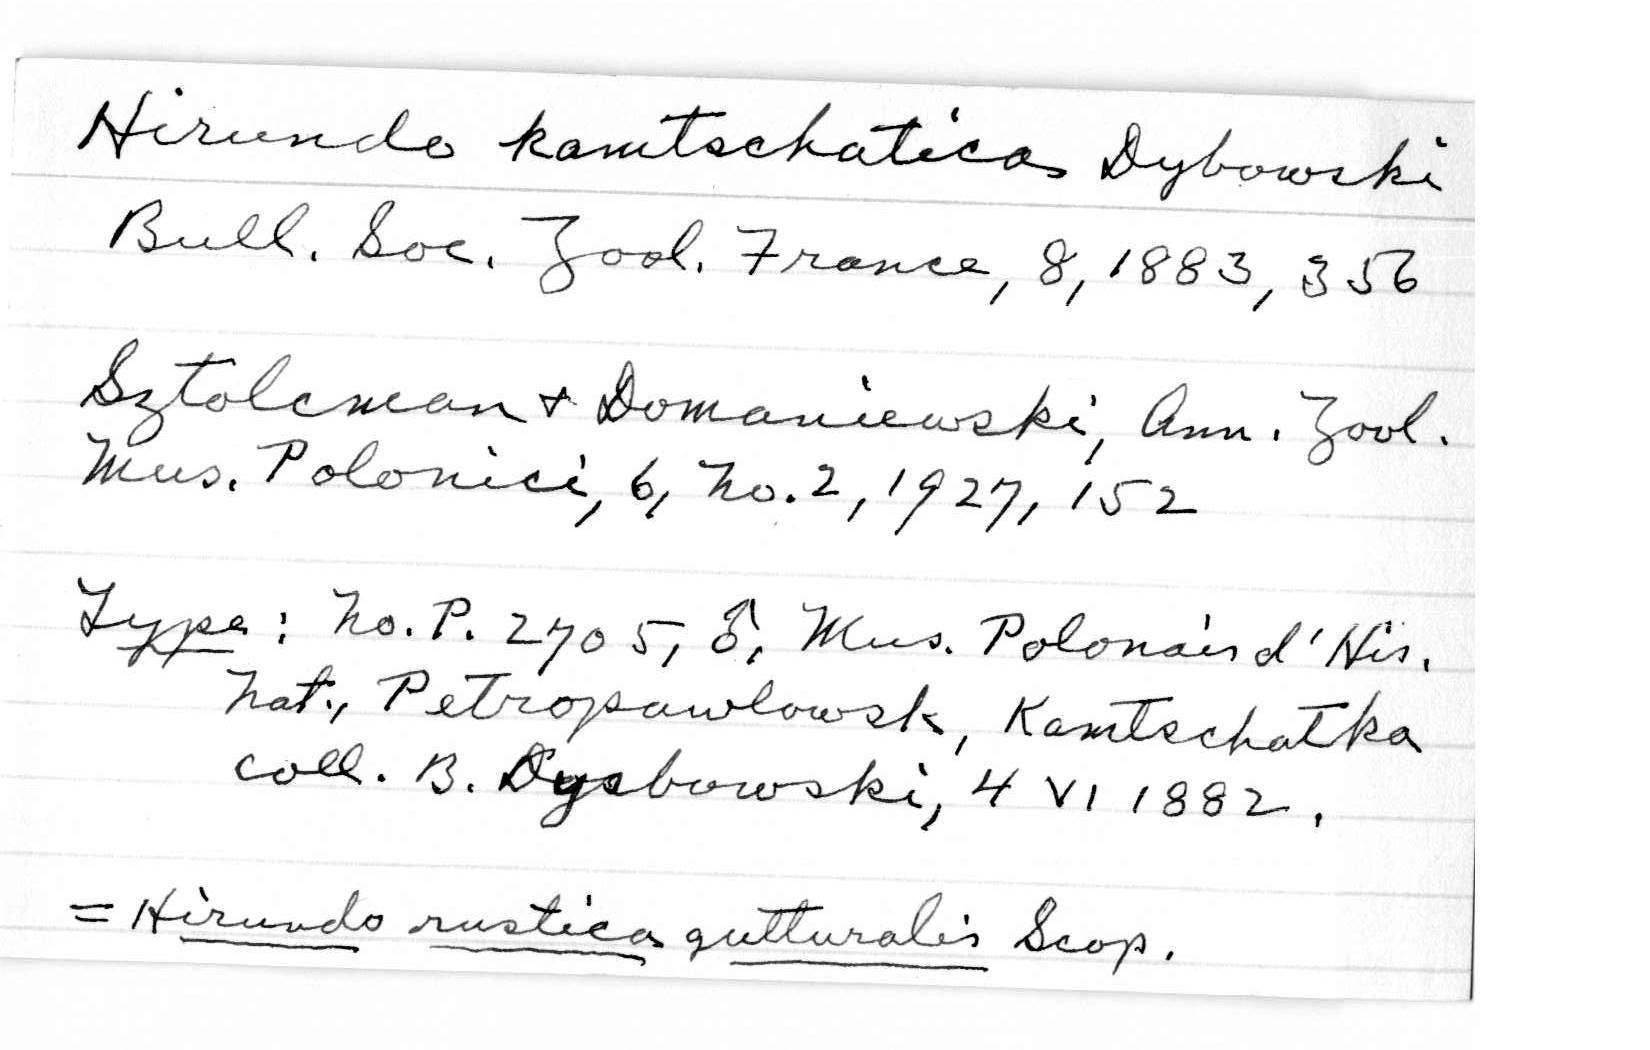 Hirundo kamtschatica Dybowski
Bull. Soc. Zool. France, 8, 1883, 356
Sztolcman + Domaniewski, Ann. Zool.
Mus. Polonici, 6, No. 2, 1927, 152
Type: No. P. 2705, ♂, Mus. Polonais d'His.
Nat., Petropawlowsk, Kamtschatka
coll. B. Dybowski, 4 VI 1882.
= Hirundo rustica gutturalis Scop.